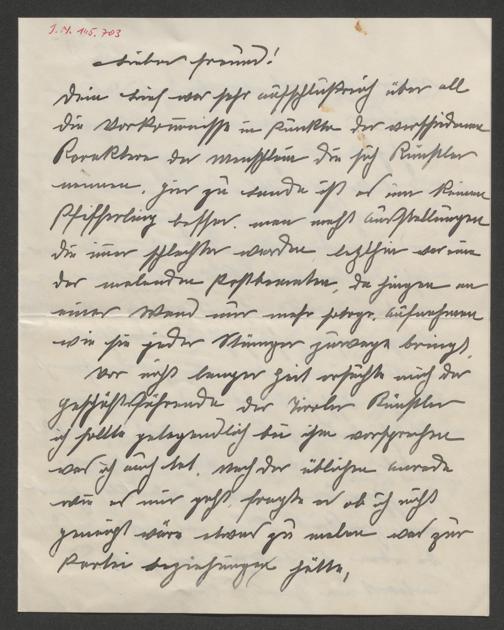 I.N. 145.703
Lieber Freund!
Dein Brief war sehr aufschlußreich über all
die Vorkomnisse in Punkto der verschiedenen
Karaktere der Menschlein die sich Künstler
nennen. Hier zu Lande ist es um keinen
Pfifferling besser. Man macht Ausstellungen
die imer schlechter werden, letzthin war eine
der malenden Postbeamten, da hingen an
einer Wand nur mehr fotogr. Aufnahmen
wie sie jeder Stümper zuwege bringt.
Vor nicht langer Zeit ersuchte mich der
Geschäftsführende der Tiroler Künstler
ich sollte gelegendlich bei ihm vorsprechen
was ich auch tat. Nach der üblichen Anrede
wie es mir geht, fragte er ob ich nicht
geneigt wäre etwas zu malen was zur
Partei beziehungen hätte,